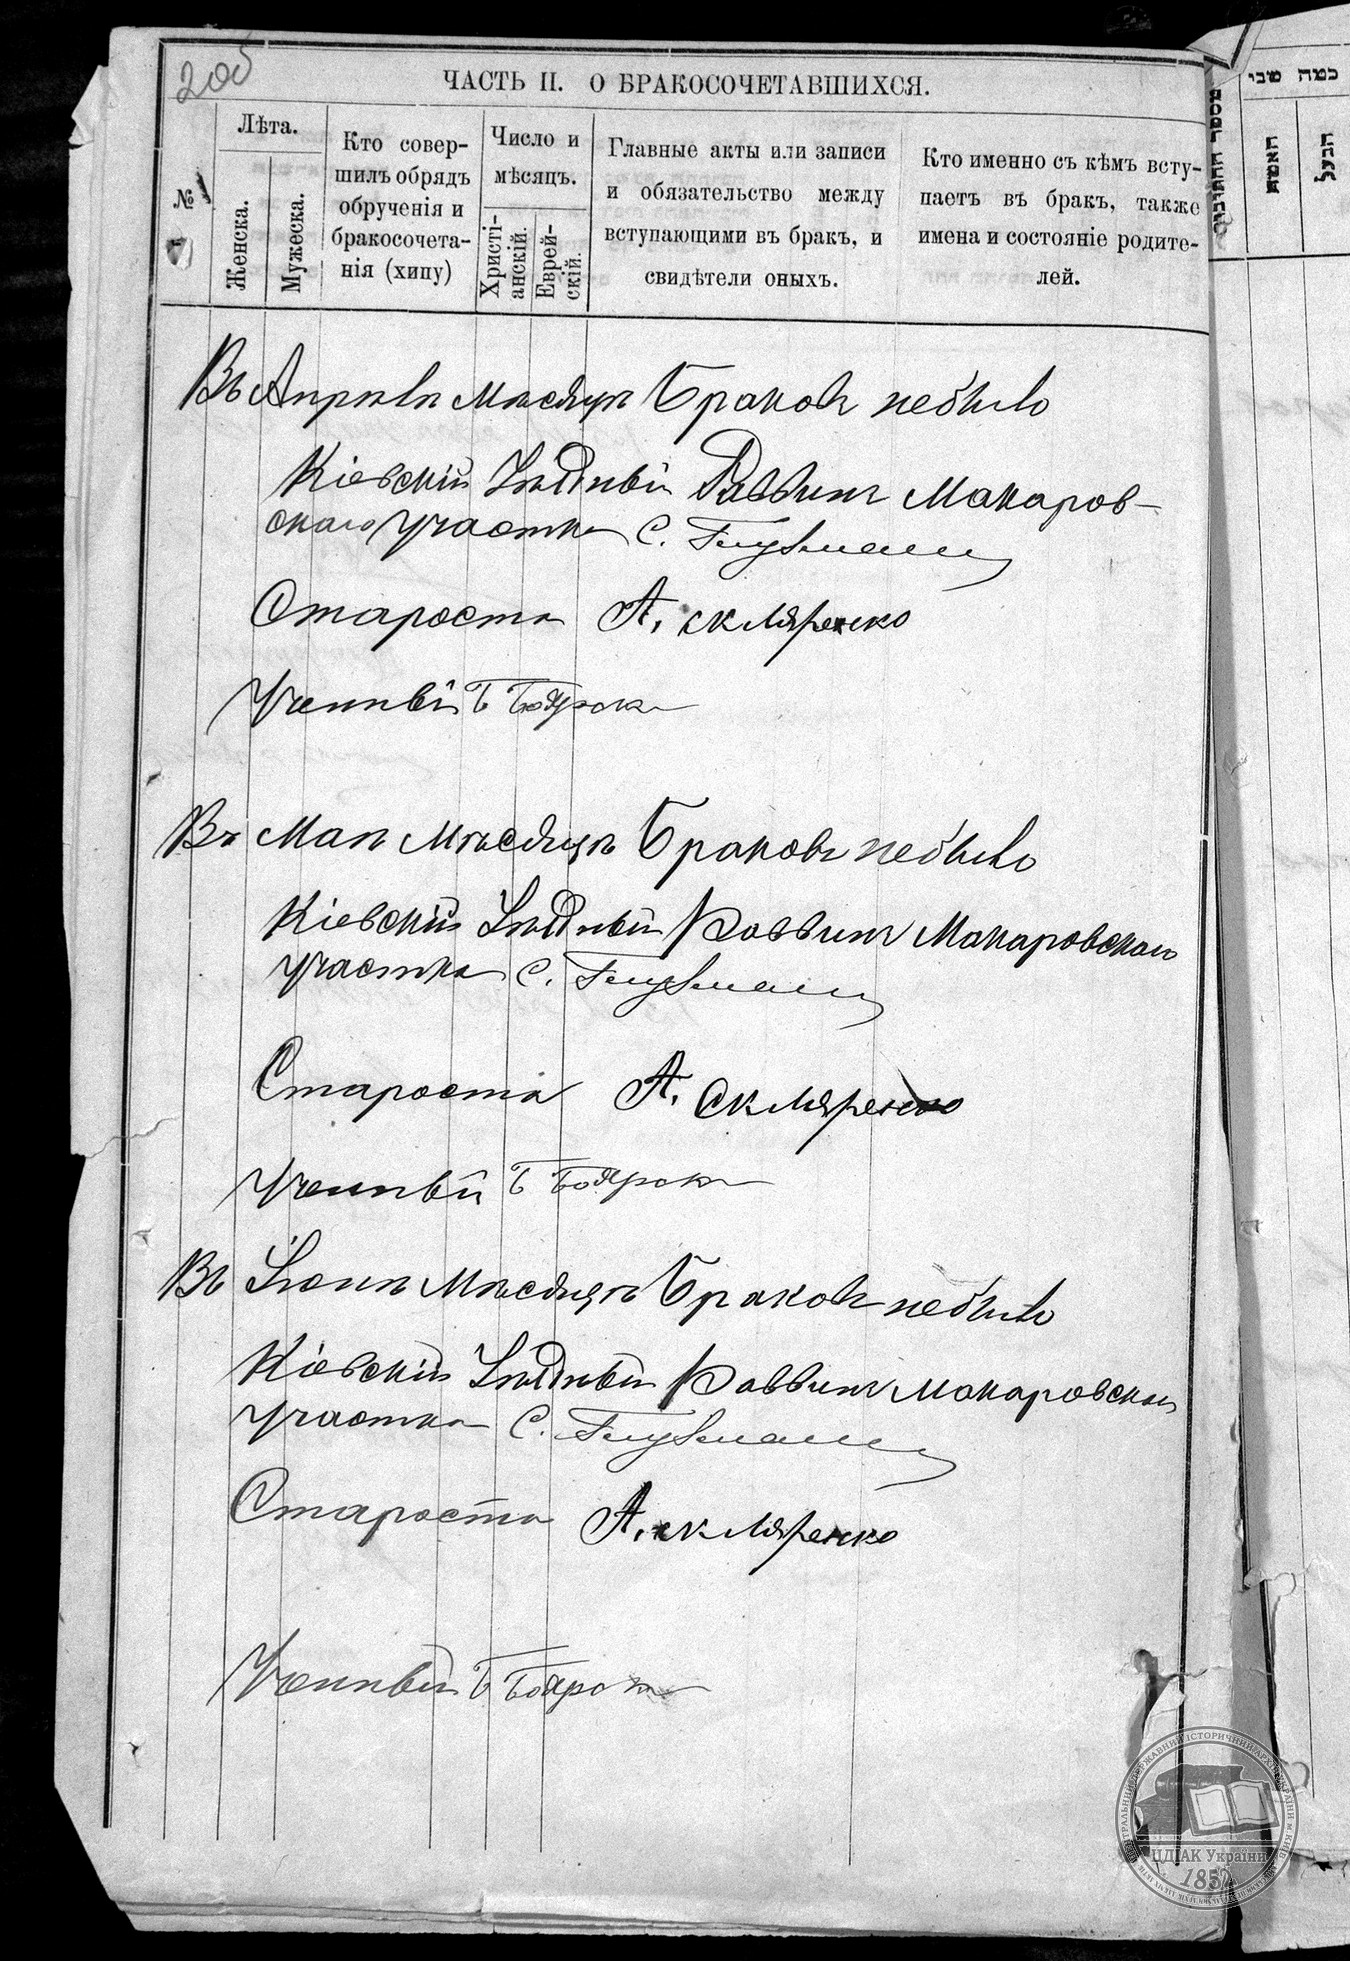 205
ЧАСТЬ II. О БРАКОСОЧЕТАВШИХСЯ.
№
Лѣта.
Женска.
Мужеска.
Кто совер-
шилъ обрядъ
обрученія и
бракосочета-
нія (хипу)
Число и
мѣсяцъ.
Христі-
анскій.
Еврей-
скій.
Главные акты или записи
и обязательство между
вступающими въ бракъ, и
свидѣтели оныхъ.
Кто именно съ кѣмъ всту-
паетъ въ бракъ, также
имена и состояніе родите-
лей.
Въ Апрѣлѣ Мѣсяцѣ Браковъ небыло
Кіевскій Уѣздный Раввинъ Макаров-
скаго участка С. Глузманъ
Староста А. Скляренко
Ученый Б Боярск
Въ Маѣ Мѣсяцѣ Браковъ небыло
Кіевскій Уѣздный Раввинъ Макаровскаго
участка С. Глузманъ
Староста А. Скляренко
Ученый Б Боярск
Въ Іюнѣ Мѣсяцѣ Браковъ небыло
Кіевскій Уѣздный Раввинъ Макаровскаго
участка С. Глузманъ
Староста А. Скляренко
Ученый Б Боярск
האשה
הבעל
ЦЕНТРАЛЬНИЙ ДЕРЖАВНИЙ ІСТОРИЧНИЙ АРХІВ УКРАЇНИ м КИЇВ
ЦДІАК України
1852